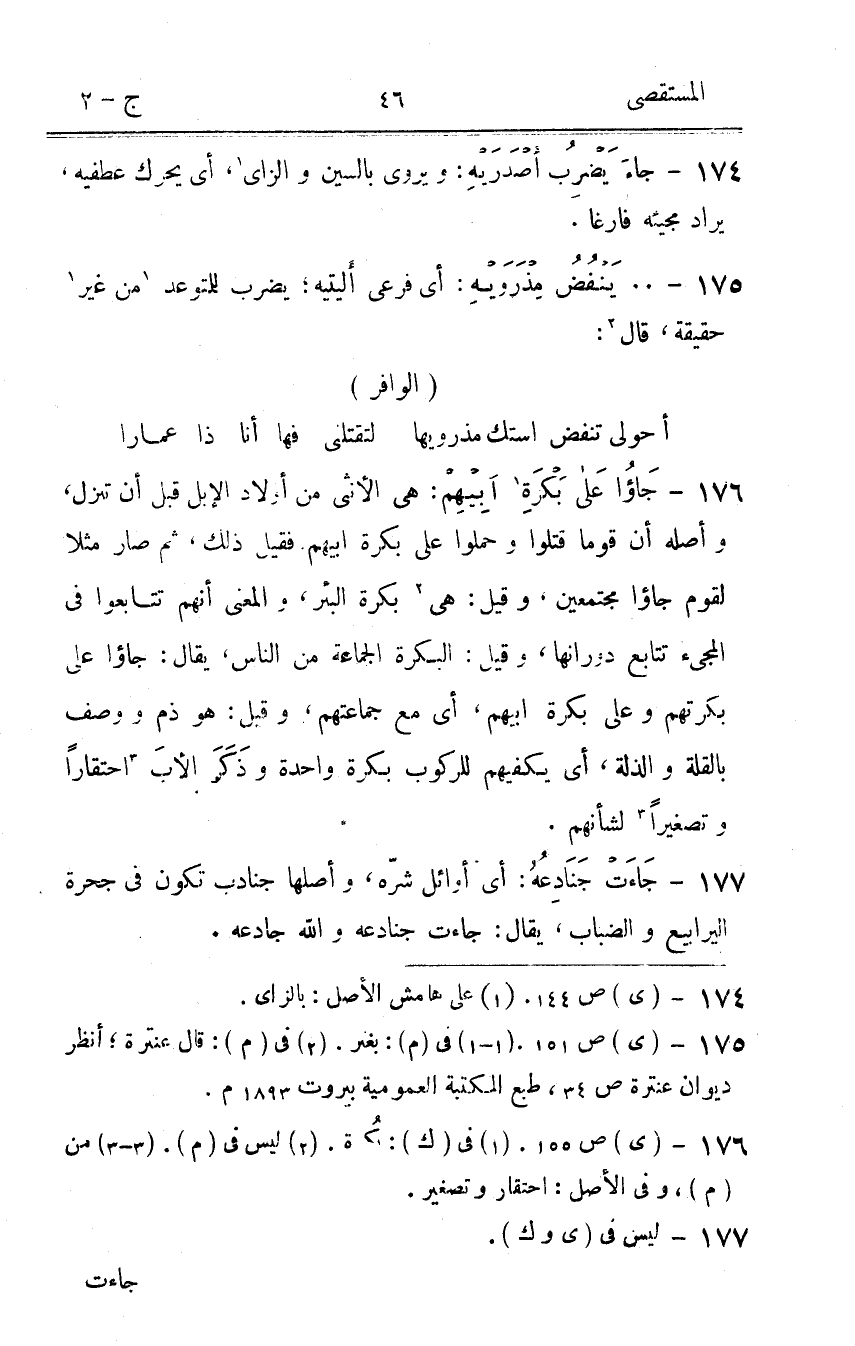 المستقصى ٤٦ ج – ٢
١٧٤ – جاءَ يَضرِبُ أصْدَرَيْهِ: و يروى بالسين و الزاى١، أى يحرك عطفيه،
يراد مجيئه فارغا .
١٧٥ – ٠٠ يَنفُضُ مِذْرَوَيْهِ: أى فرعى أَليتيه؛ يضرب للتوعد ١من غير١
حقيقة، قال٢:
( الوافر )
أ حولى تنفض استك مذرويها لتقتلنى فها أنا ذا عمارا
١٧٦ – جَاؤُا عَلَى بَكْرَةِ١ أَبِيْهِمْ: هى الأنثى من أولاد الإبل قبل أن تبزل،
و أصله أن قوما قتلوا و حملوا على بكرة ابيهم فقيل ذلك، ثم صار مثلا
لقوم جاؤا مجتمعين، و قيل: هى٢ بكرة البئر، و المعنى أنهم تتابعوا فى
المجىء تتابع دورانها، و قيل: البكرة الجماعة من الناس، يقال: جاؤا على
بكرتهم و على بكرة ابيهم، أى مع جماعتهم، و قيل: هو ذم و وصف
بالقلة و الذلة، أى يكفيهم للركوب بكرة واحدة و ذَكَرَ الأبَ ٣احتقاراً
و تصغيراً٣ لشأنهم .
١٧٧ – جَاءَتْ جَنَادِعُهُ: أى أوائل شرّه، و أصلها جنادب تكون فى جحرة
اليرابيع و الضباب، يقال: جاءت جنادعه و الله جادعه .
١٧٤ – (ى) ص ١٤٤. (١) على هامش الأصل: بالزاى .
١٧٥ – (ى) ص ١٥١ .(١–١) فى (م): بغير . (٢) فى (م): قال عنترة؛ أنظر
ديوان عنترة ص ٣٤، طبع المكتبة العمومية بيروت ١٨٩٣ م .
١٧٦ – (ى) ص ١٥٥ . (١) فى (ك): بُكرة . (٢) ليس فى (م) . (٣–٣) من
(م)، و فى الأصل: احتقار و تصغير .
١٧٧ – ليس فى (ى و ك).
جاءت